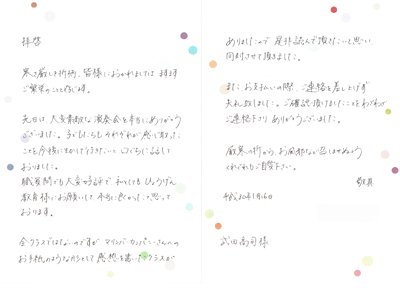 拝啓
寒さ厳しき折柄、皆様におかれましては ますます
ご繁栄のこと存じます。
先日は、大変素敵な演奏会を本当にありがとう
ございました。子どもたちも それぞれが感じ取った
ことを今後に生かして行きたいと 口ぐちに話して
おりました。
職員間でも大変好評で 私としても ひょうげん
教育様にお願いして 本当に良かったと思って
おります。
全クラスではないのですが マリンバカンパニーさんへの
お手紙のようなかたちとして 感想を書いたクラスが
ありましたので 是非読んで頂きたいと思い
同封させて頂きました。
また お支払いの際、ご連絡を差し上げず
失礼致しました。ご確認頂けましたことをわざわざ
ご連絡下さり ありがとうございました。
厳寒の折から、お風邪など召しませぬよう
くれぐれもご自愛下さい。
敬具
平成30年1月16日
武田高司様